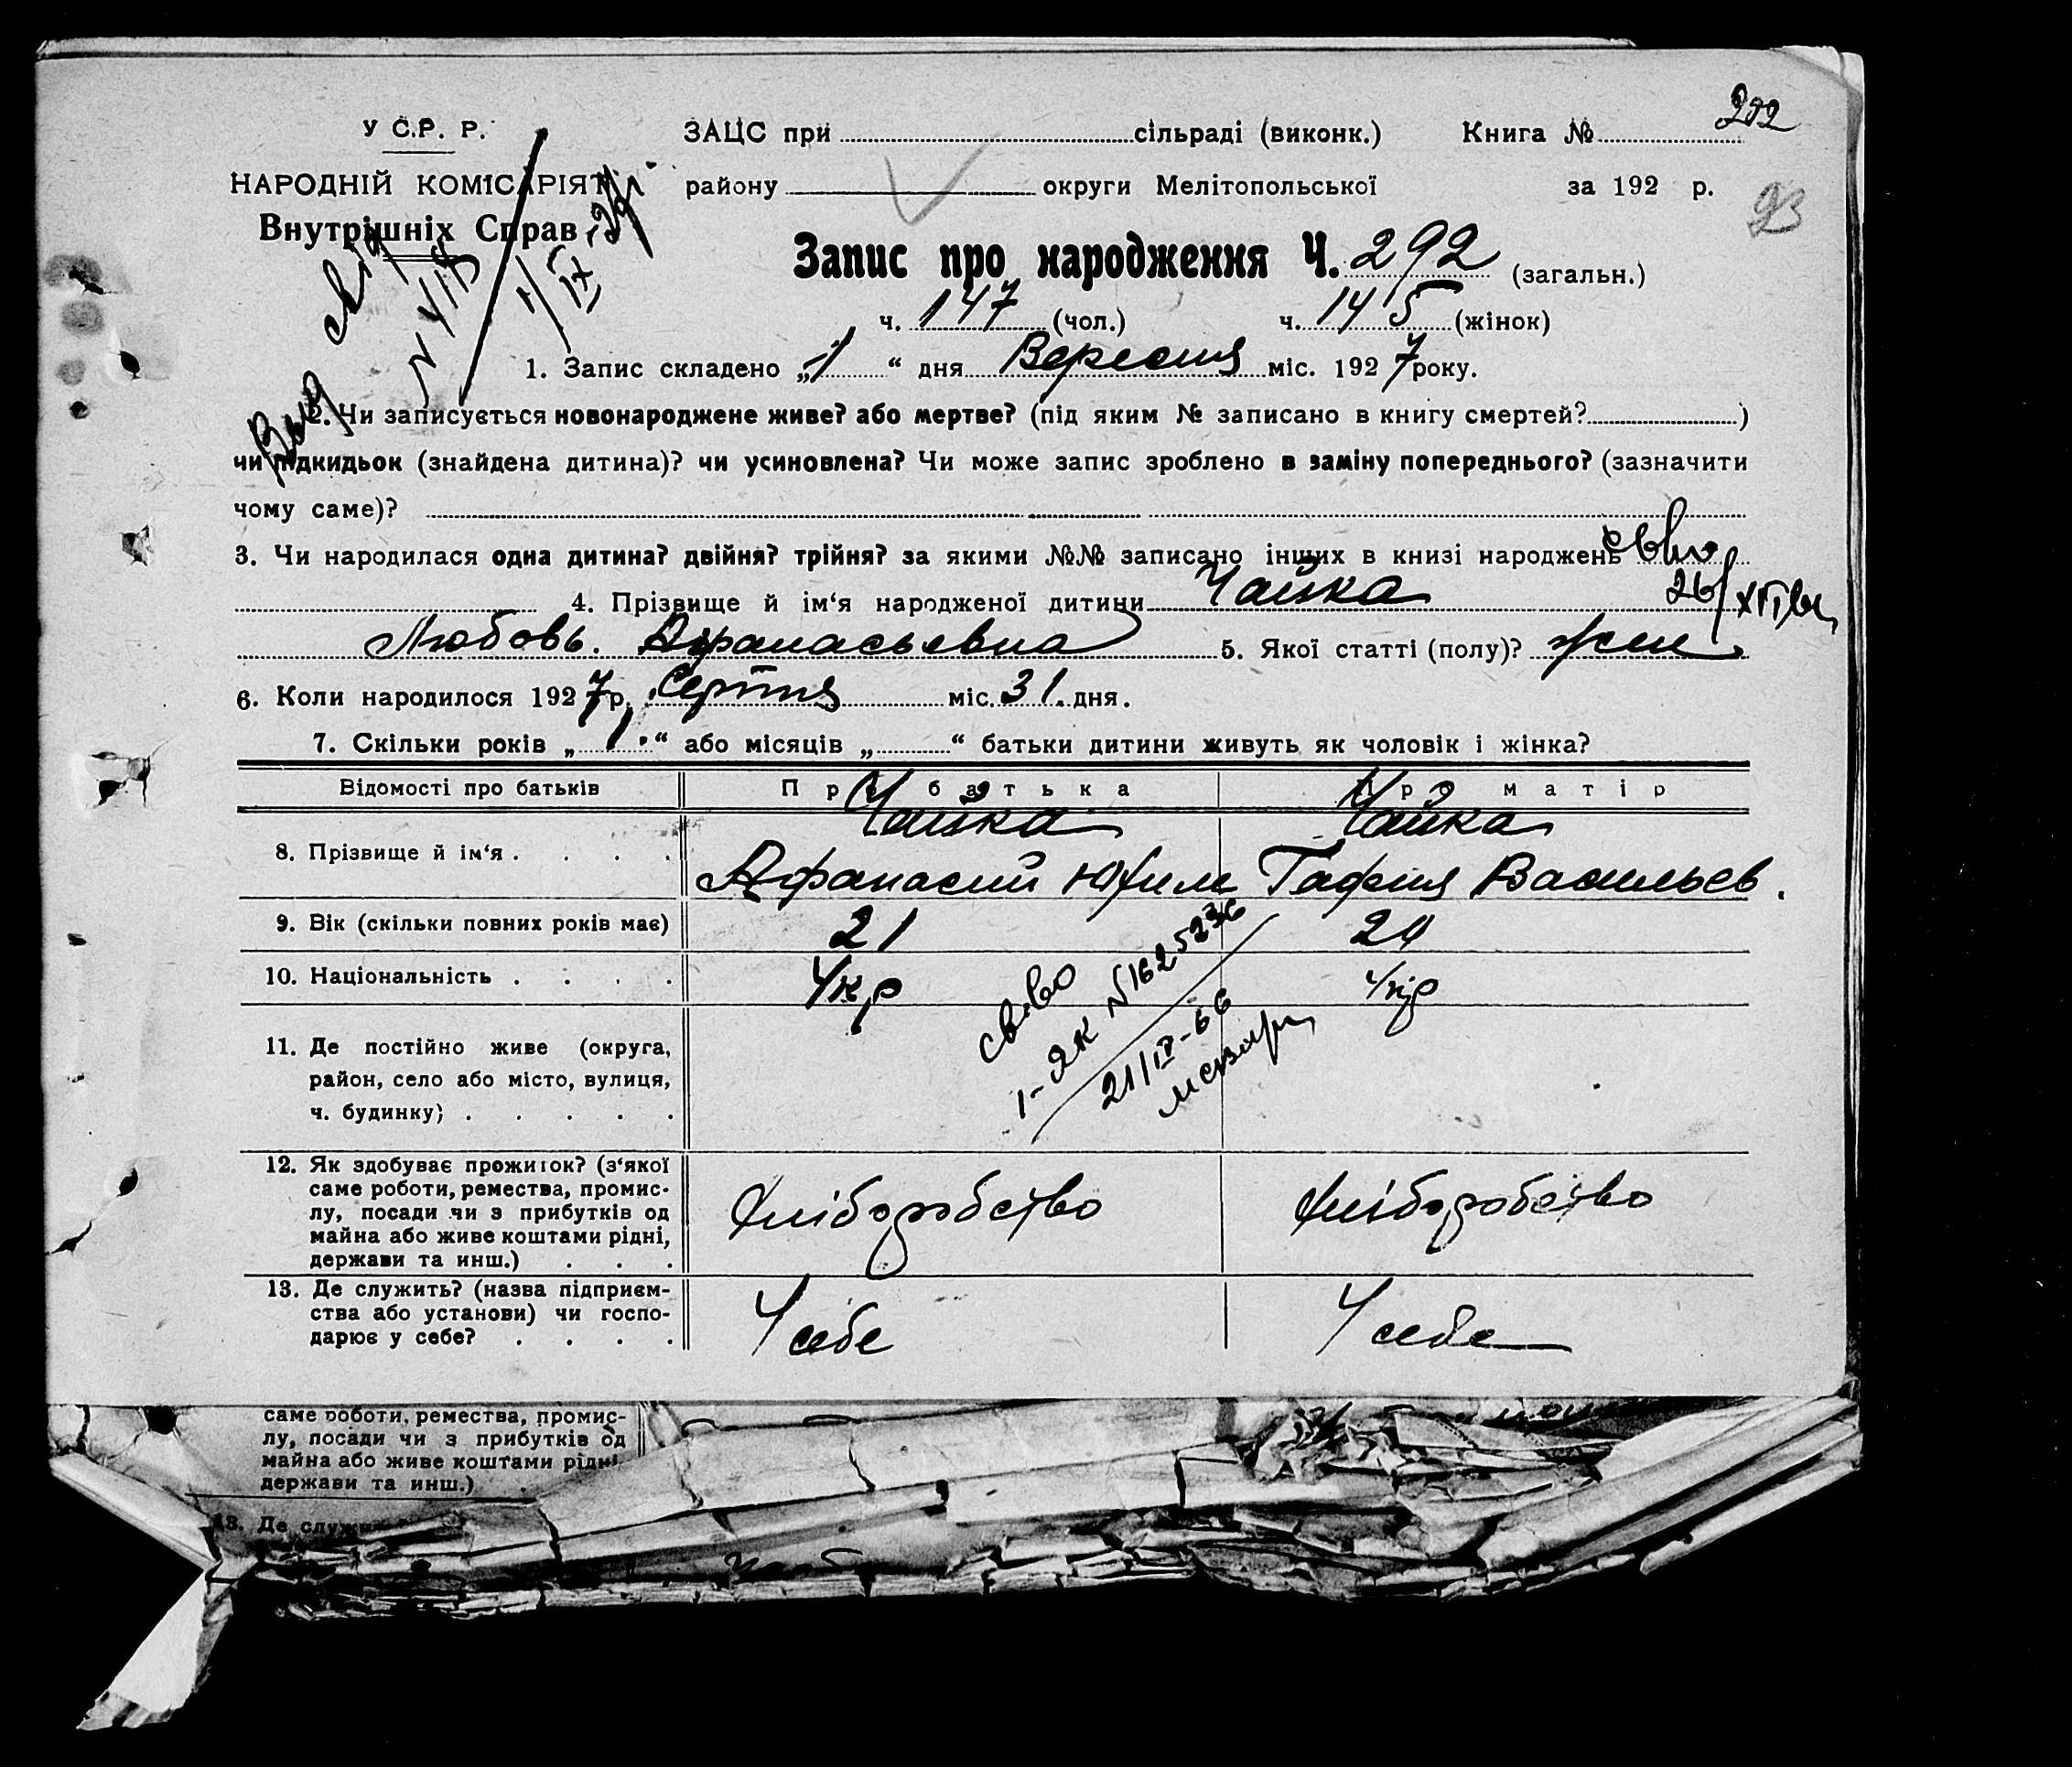 292
У С.Р. Р. ЗАЦС при сільраді (виконк.) Книга №
НАРОДНІЙ КОМІСАРІЯТ району округи Мелітопольської за 192 р.
93
Внутрішніх Справ
Запис про народження Ч. 292 (загальн.)
ч. 147 (чол.) ч. 145 (жінок)
1. Запис складено „1“ дня Вересня міс. 1927 року.
2. Чи записується новонароджене живе? або мертве? (під яким № записано в книгу смертей? )
чи підкидьок (знайдена дитина)? чи усиновлена? Чи може запис зроблено в заміну попереднього? (зазначити
чому саме)?
3. Чи народилася одна дитина? двійня? трійня? за якими №№ записано інших в книзі народжень
4. Прізвище й ім‘я народженої дитини Чайка
Любовь. Афанасьевна 5. Якої статті (полу)? жен
6. Коли народилося 1927 р. Серпня міс. 31. дня.
7. Скільки років „1.“ або місяців „ “ батьки дитини живуть як чоловік і жінка?
Відомості про батьків Про батька Про матір
Чайка Чайка
8. Прізвище й ім‘я . . . . Афанасий Юхим Гафия Васильев.
9. Вік (скільки повних років має) 21 20
10. Національність . . . . Укр Укр
свво
1-ЯК №1625236
21/IV-66
11. Де постійно живе (округа,
район, село або місто, вулиця,
ч. будинку) . . . . .
12. Як здобуває прожиток? (з‘якої
саме роботи, ремества, промис-
лу, посади чи з прибутків од
майна або живе коштами рідні,
держави та инш.) . . .
Хліборобство Хліборобство
13. Де служить? (назва підприєм-
ства або установи) чи госпо-
дарює у себе? . . . .
У себе У себе
саме роботи, ремества, промис-
лу, посади чи з прибутків од
майна або живе коштами рідні
держави та инш.) .
13. Де служи